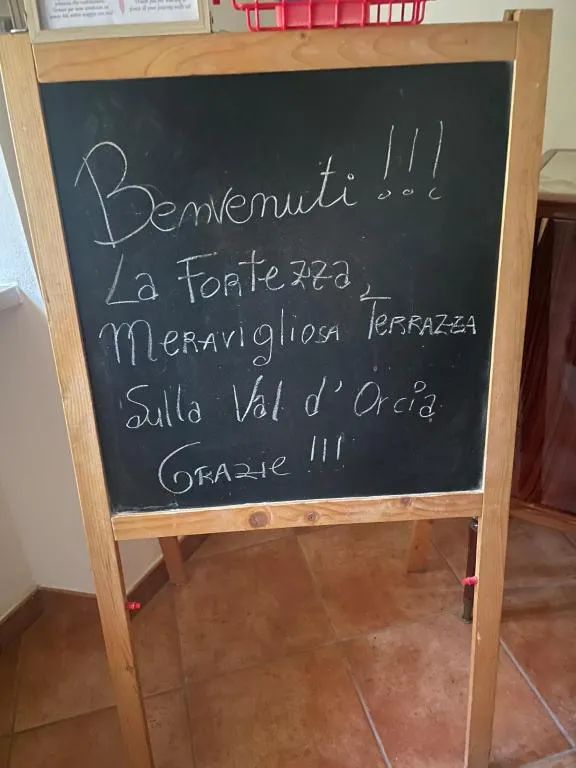 Benvenuti !!!
La Fortezza,
Meravigliosa Terrazza
Sulla Val d'Orcia
Grazie !!!